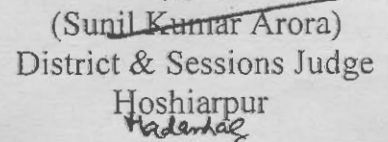 (Sunil Kumar Arora)
District & Sessions Judge
Hoshiarpur